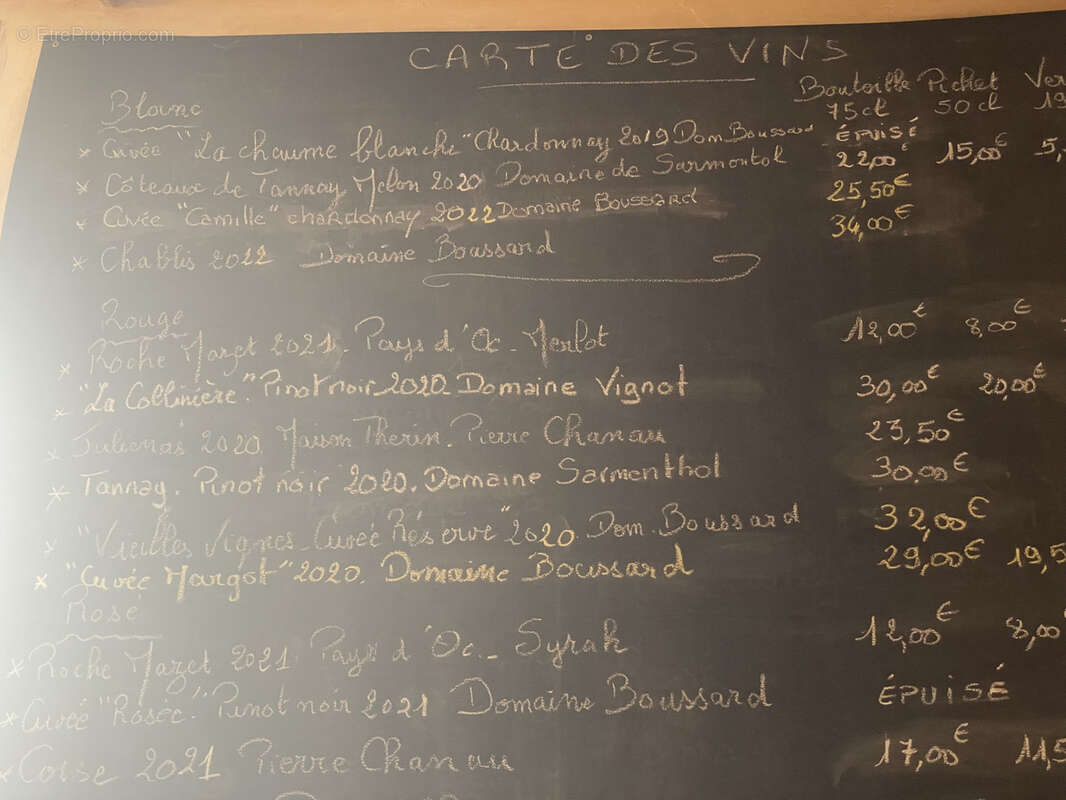 © EtreProprio.com
CARTE DES VINS
Bouteille Pichet Ver
75cl 50cl 19
Blanc
* Cuvée "La chaume blanche" Chardonnay 2019 Dom. Boussard ÉPUISÉ
* Côteaux de Tannay Melon 2020 Domaine de Sarmontol 22,00€ 15,00€ 5,
* Cuvée "Camille" chardonnay 2022 Domaine Boussard 25,50€
* Chablis 2022 Domaine Boussard 34,00€
Rouge
* Roche Mazet 2021. Pays d'Oc - Merlot 12,00€ 8,00€
* "La Collinière". Pinot noir 2020. Domaine Vignot 30,00€ 20,00€
* Julienas 2020. Maison Therin. Pierre Chanau 23,50€
* Tannay. Pinot noir 2020. Domaine Sarmenthol 30,00€
* "Vieilles Vignes - Cuvée Réserve" 2020. Dom. Boussard 32,00€
* "Cuvée Margot" 2020. Domaine Boussard 29,00€ 19,5
Rosé
* Roche Mazet 2021 Pays d'Oc - Syrah 12,00€ 8,00
* Cuvée "Rosée". Pinot noir 2021 Domaine Boussard ÉPUISÉ
* Corse 2021 Pierre Chanau 17,00€ 11,5